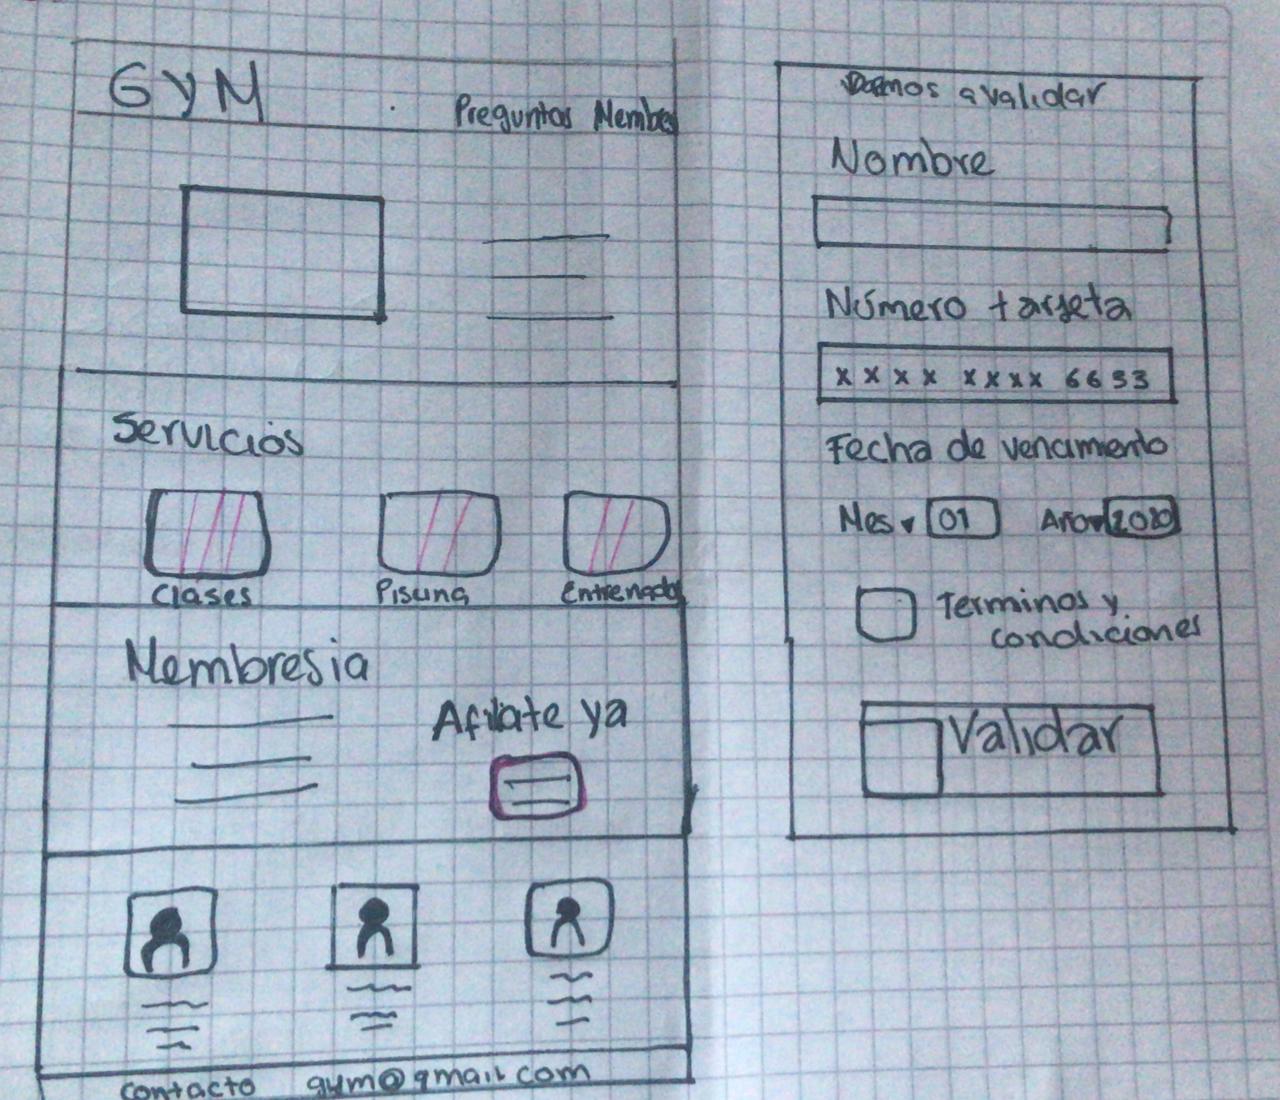 GYM
Preguntas Membre
Servicios
Clases Piscina Entrenador
Membresia
Afiliate ya
contacto gym@gmail.com
Vamos a validar
Nombre
Número tarjeta
xxxx xxxx 6633
Fecha de vencimiento
Mes 01 Año 2020
Terminos y
condiciones
Validar